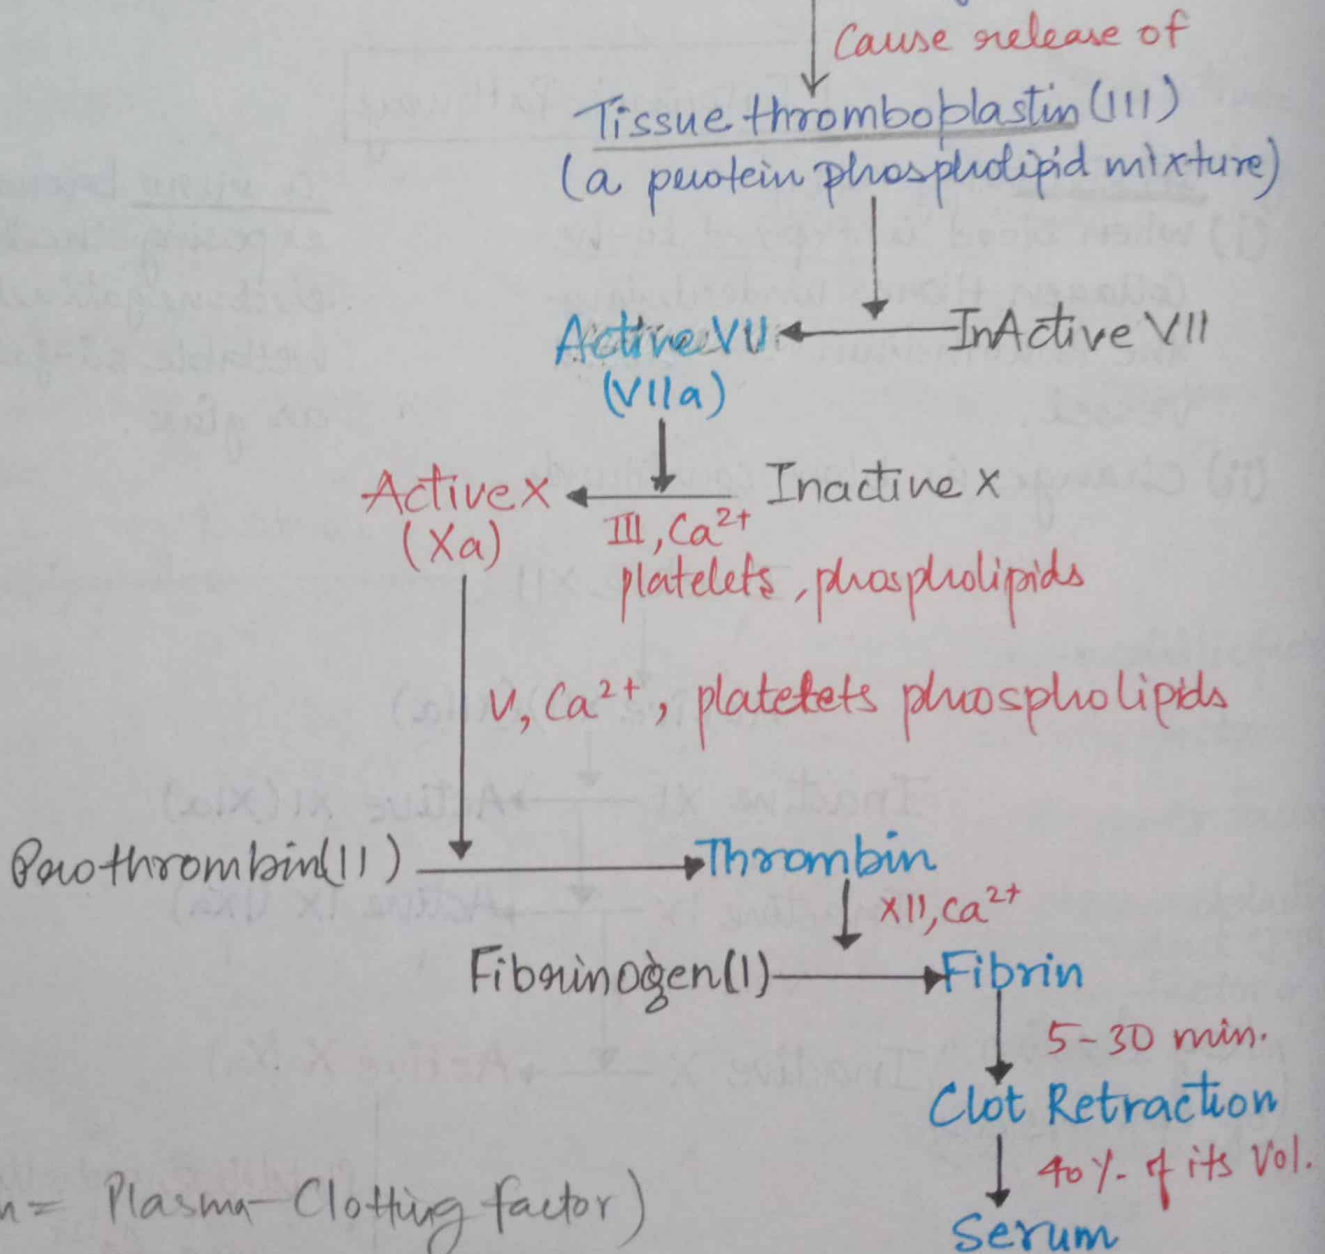 Cause release of
Tissue thromboplastin (III)
(a protein phospholipid mixture)
Active VII InActive VII
(VIIa)
Active X Inactive X
(Xa) III, Ca2+
platelets, phospholipids
V, Ca2+, platelets phospholipids
Prothrombin(II) Thrombin
XII, Ca2+
Fibrinogen(I) Fibrin
5-30 min.
Clot Retraction
40% of its Vol.
= Plasma-Clotting factor)
Serum